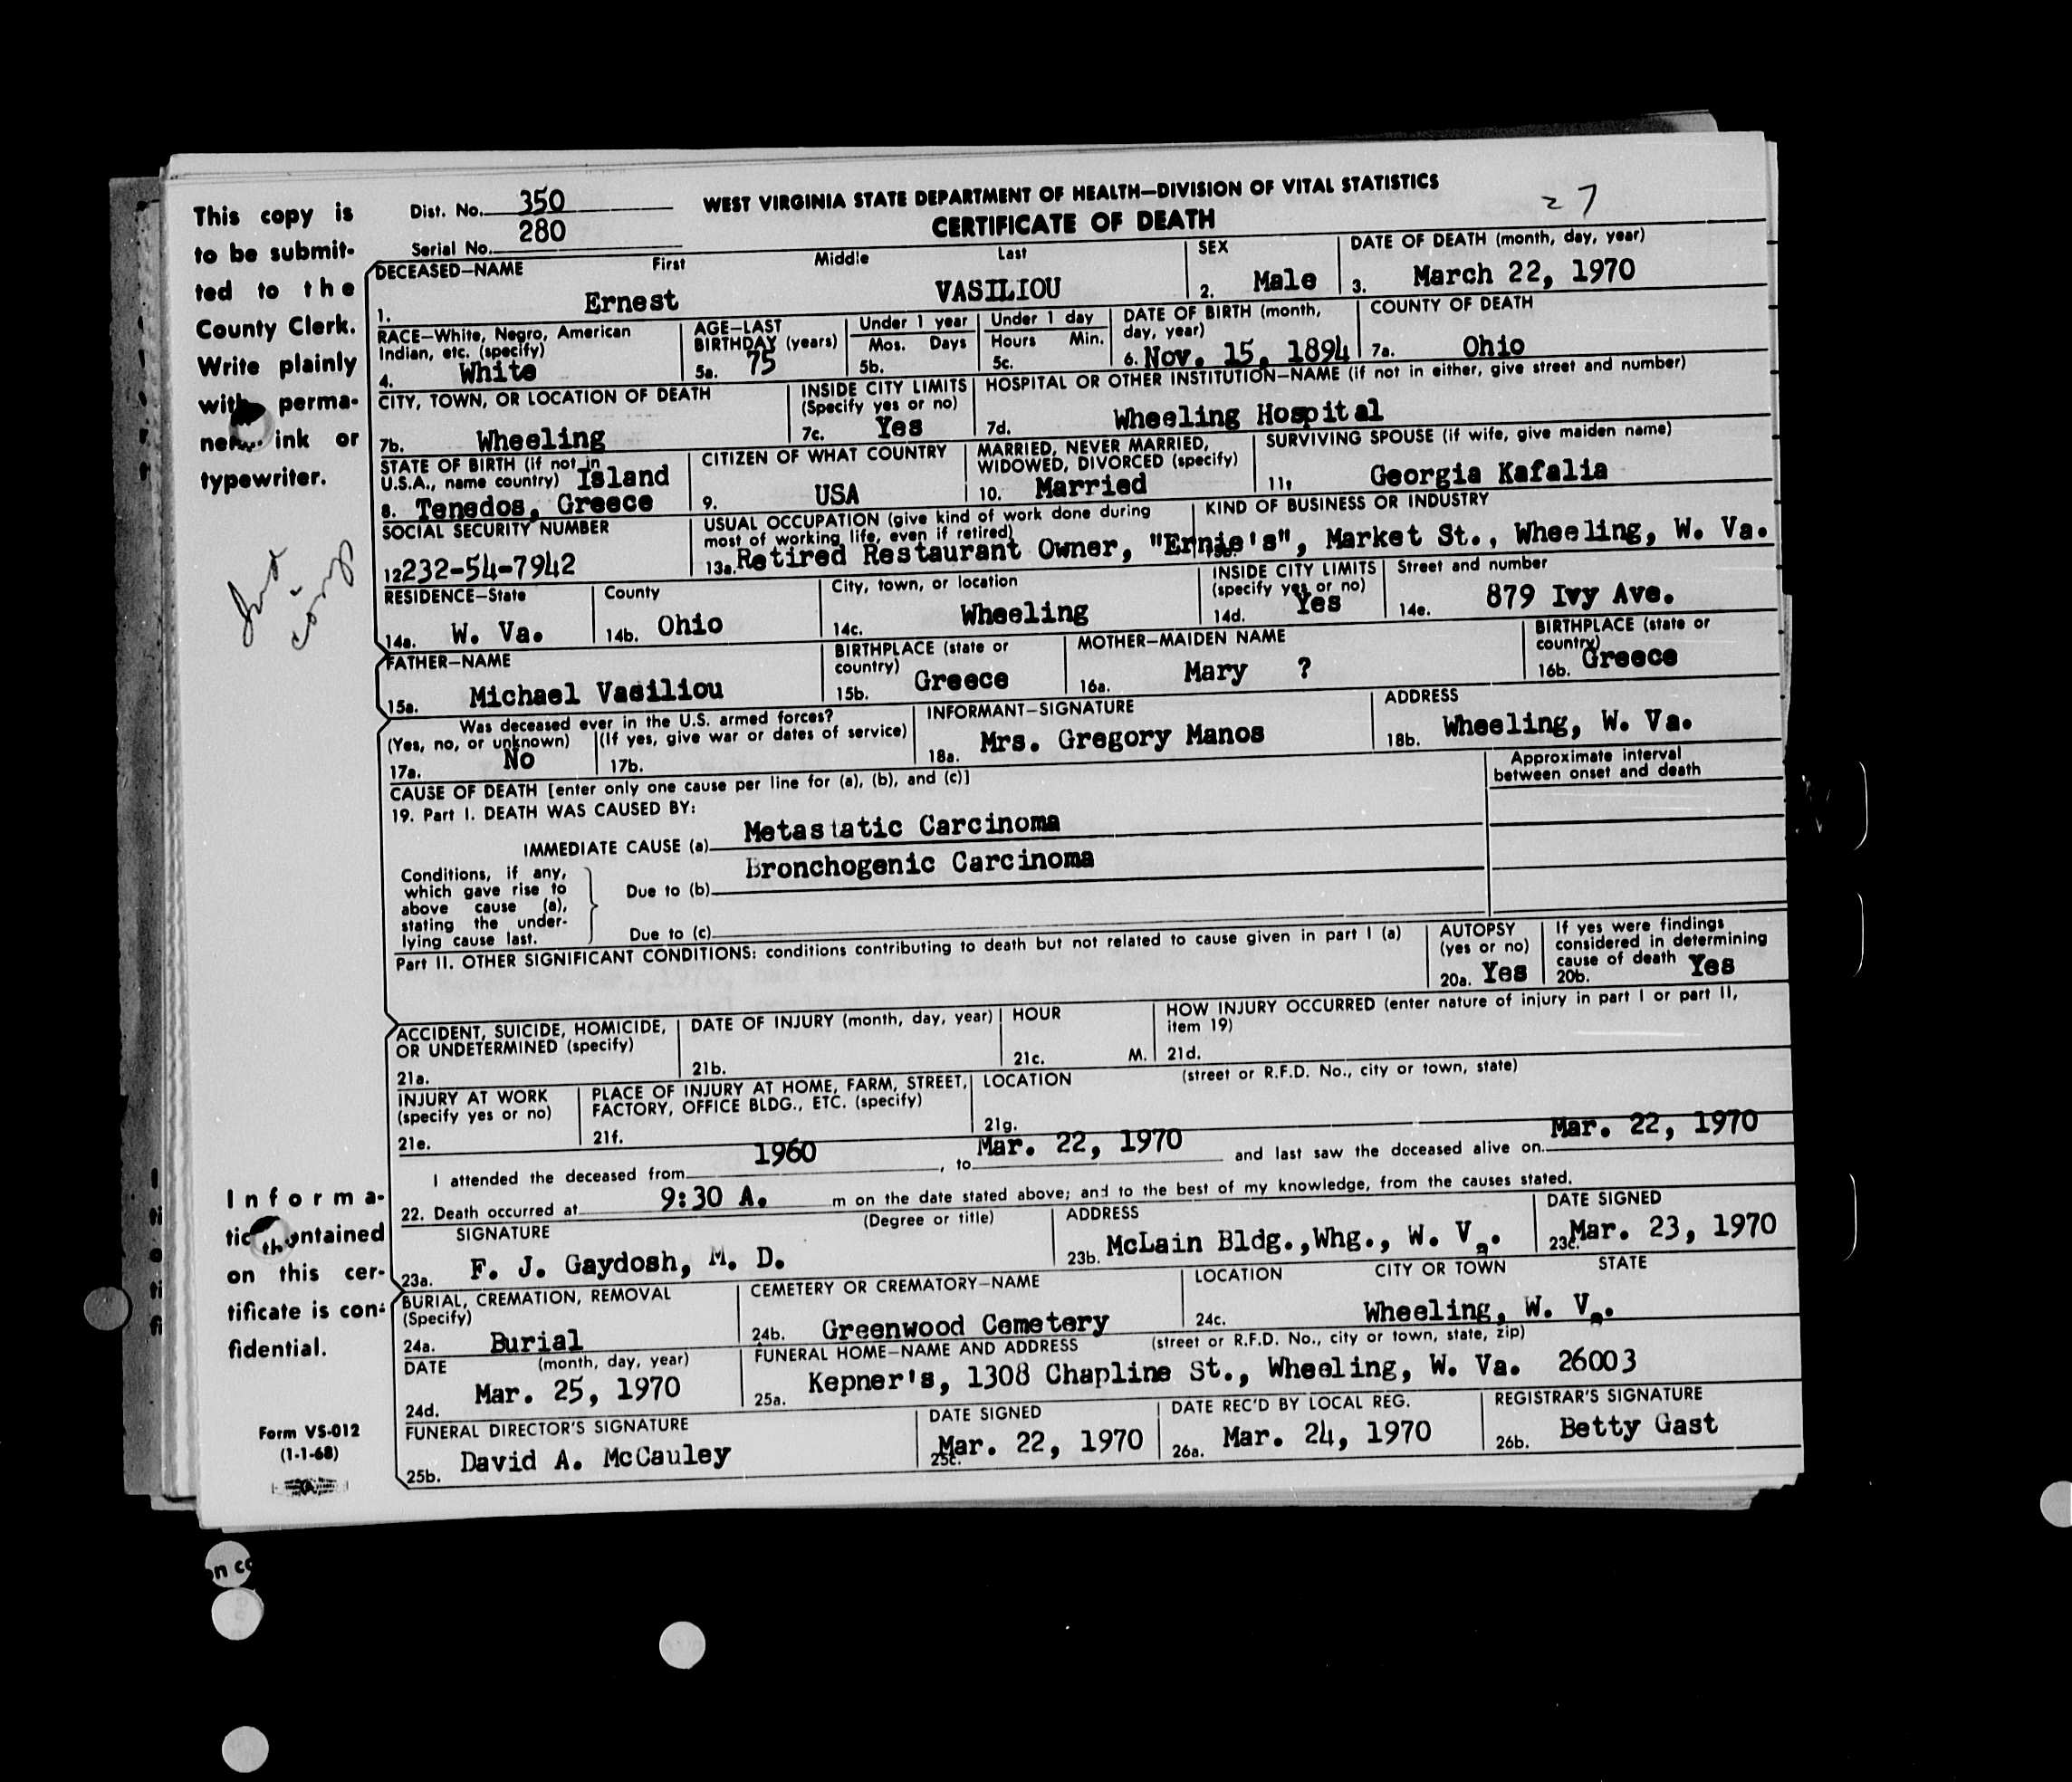 This copy is
to be submit-
ted to the
County Clerk.
Write plainly
with perma-
ink or
typewriter.
Dist. No. 350
Serial No. 280
WEST VIRGINIA STATE DEPARTMENT OF HEALTH—DIVISION OF VITAL STATISTICS
CERTIFICATE OF DEATH
27
DECEASED—NAME First Middle Last
1. Ernest VASILIOU
SEX
2. Male
DATE OF DEATH (month, day, year)
3. March 22, 1970
RACE—White, Negro, American
Indian, etc. (specify)
4. White
AGE—LAST
BIRTHDAY (years)
5a. 75
Under 1 year
Mos. Days
5b.
Under 1 day
Hours Min.
5c.
DATE OF BIRTH (month,
day, year)
6. Nov. 15, 1894
COUNTY OF DEATH
7a. Ohio
CITY, TOWN, OR LOCATION OF DEATH
7b. Wheeling
INSIDE CITY LIMITS
(Specify yes or no)
7c. Yes
HOSPITAL OR OTHER INSTITUTION—NAME (if not in either, give street and number)
7d. Wheeling Hospital
STATE OF BIRTH (if not in
U.S.A., name country) Island
8. Tenedos, Greece
CITIZEN OF WHAT COUNTRY
9. USA
MARRIED, NEVER MARRIED,
WIDOWED, DIVORCED (specify)
10. Married
SURVIVING SPOUSE (if wife, give maiden name)
11. Georgia Kafalia
SOCIAL SECURITY NUMBER
12. 232-54-7942
USUAL OCCUPATION (give kind of work done during
most of working life, even if retired)
KIND OF BUSINESS OR INDUSTRY
13a. Retired Restaurant Owner, "Ernie's", Market St., Wheeling, W. Va.
RESIDENCE—State
14a. W. Va.
County
14b. Ohio
City, town, or location
14c. Wheeling
INSIDE CITY LIMITS
(specify yes or no)
14d. Yes
Street and number
14e. 879 Ivy Ave.
FATHER—NAME
15a. Michael Vasiliou
BIRTHPLACE (state or
country)
15b. Greece
MOTHER—MAIDEN NAME
16a. Mary ?
BIRTHPLACE (state or
country)
16b. Greece
Was deceased ever in the U.S. armed forces?
(Yes, no, or unknown) (If yes, give war or dates of service)
17a. No 17b.
INFORMANT—SIGNATURE
18a. Mrs. Gregory Manos
ADDRESS
18b. Wheeling, W. Va.
CAUSE OF DEATH [enter only one cause per line for (a), (b), and (c)]
Approximate interval
between onset and death
19. Part I. DEATH WAS CAUSED BY:
IMMEDIATE CAUSE (a) Metastatic Carcinoma
Conditions, if any,
which gave rise to
above cause (a),
stating the under-
lying cause last.
Due to (b) Bronchogenic Carcinoma
Due to (c)
Part II. OTHER SIGNIFICANT CONDITIONS: conditions contributing to death but not related to cause given in part I (a)
AUTOPSY
(yes or no)
20a. Yes
If yes were findings
considered in determining
cause of death
20b. Yes
ACCIDENT, SUICIDE, HOMICIDE,
OR UNDETERMINED (specify)
21a.
DATE OF INJURY (month, day, year)
21b.
HOUR
21c. M.
HOW INJURY OCCURRED (enter nature of injury in part I or part II,
item 19)
21d.
INJURY AT WORK
(specify yes or no)
21e.
PLACE OF INJURY AT HOME, FARM, STREET,
FACTORY, OFFICE BLDG., ETC. (specify)
21f.
LOCATION (street or R.F.D. No., city or town, state)
21g.
I attended the deceased from 1960, to Mar. 22, 1970 and last saw the deceased alive on Mar. 22, 1970
22. Death occurred at 9:30 A. m on the date stated above; and to the best of my knowledge, from the causes stated.
SIGNATURE (Degree or title)
23a. F. J. Gaydosh, M. D.
ADDRESS
23b. McLain Bldg.,Whg., W. Va.
DATE SIGNED
23c. Mar. 23, 1970
BURIAL, CREMATION, REMOVAL
(Specify)
24a. Burial
CEMETERY OR CREMATORY—NAME
24b. Greenwood Cemetery
LOCATION CITY OR TOWN STATE
24c. Wheeling, W. Va.
DATE (month, day, year)
24d. Mar. 25, 1970
FUNERAL HOME—NAME AND ADDRESS (street or R.F.D. No., city or town, state, zip)
25a. Kepner's, 1308 Chapline St., Wheeling, W. Va. 26003
FUNERAL DIRECTOR'S SIGNATURE
25b. David A. McCauley
DATE SIGNED
25c. Mar. 22, 1970
DATE REC'D BY LOCAL REG.
26a. Mar. 24, 1970
REGISTRAR'S SIGNATURE
26b. Betty Gast
Informa-
contained
on this cer-
tificate is con-
fidential.
Form VS-012
(1-1-68)